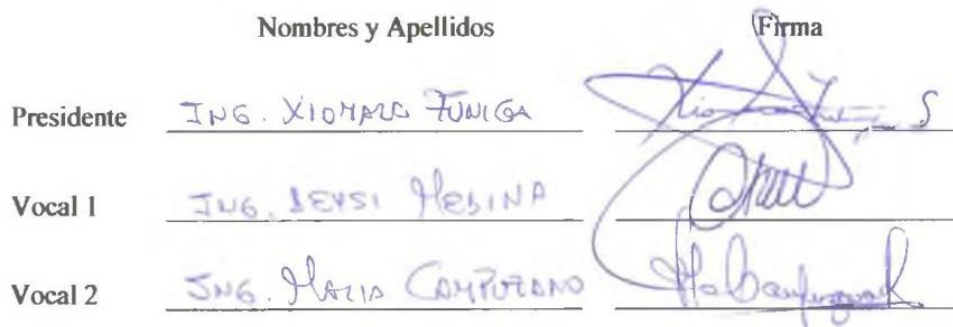 Nombres y Apellidos Firma
Presidente ING. XIOMARA ZUNIGA
Vocal 1 ING. DEYSI MEDINA
Vocal 2 ING. MARIA CAMPUZANO